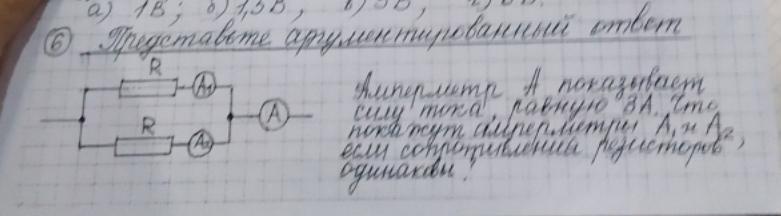 а) 1В; б) 1,5В,
⑥ Представьте аргументированный ответ
R
A₁
Амперметр А показывает
силу тока, равную 3А. Что
A
R
A₂
покажут амперметры А₁ и А₂,
если сопротивления резисторов
одинаковы?